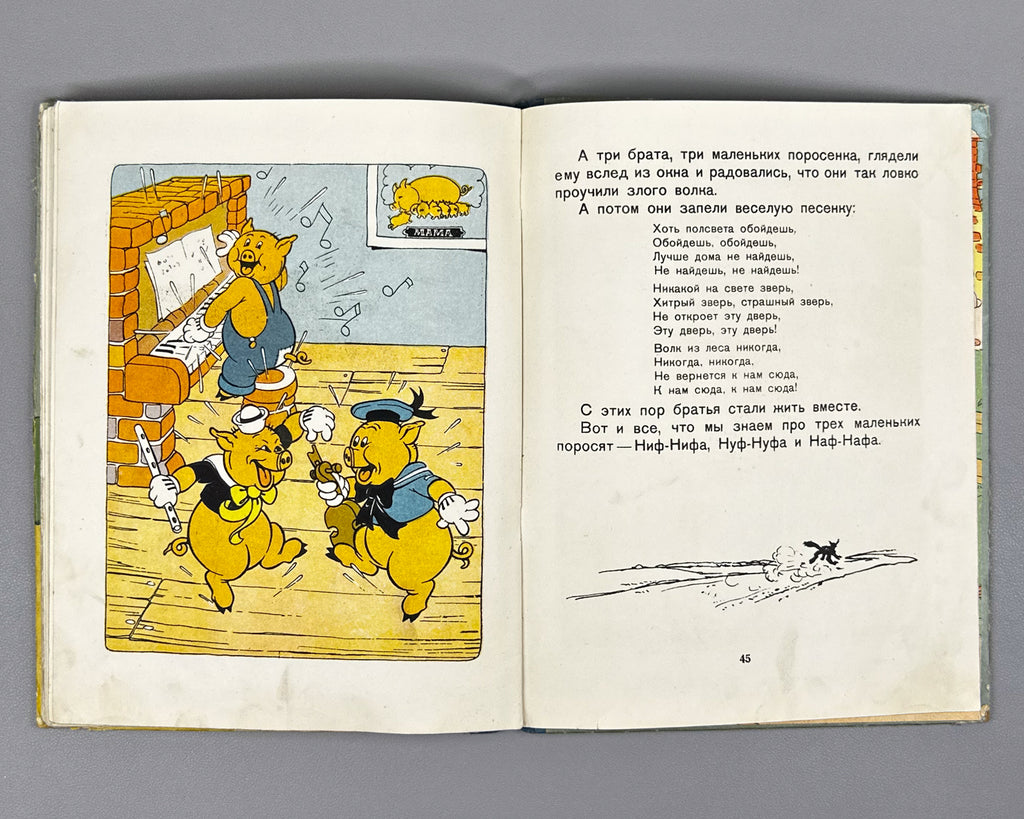 МАМА
А три брата, три маленьких поросенка, глядели
ему вслед из окна и радовались, что они так ловко
проучили злого волка.
А потом они запели веселую песенку:
Хоть полсвета обойдешь,
Обойдешь, обойдешь,
Лучше дома не найдешь,
Не найдешь, не найдешь!
Никакой на свете зверь,
Хитрый зверь, страшный зверь,
Не откроет эту дверь,
Эту дверь, эту дверь!
Волк из леса никогда,
Никогда, никогда,
Не вернется к нам сюда,
К нам сюда, к нам сюда!
С этих пор братья стали жить вместе.
Вот и все, что мы знаем про трех маленьких
поросят — Ниф-Нифа, Нуф-Нуфа и Наф-Нафа.
45